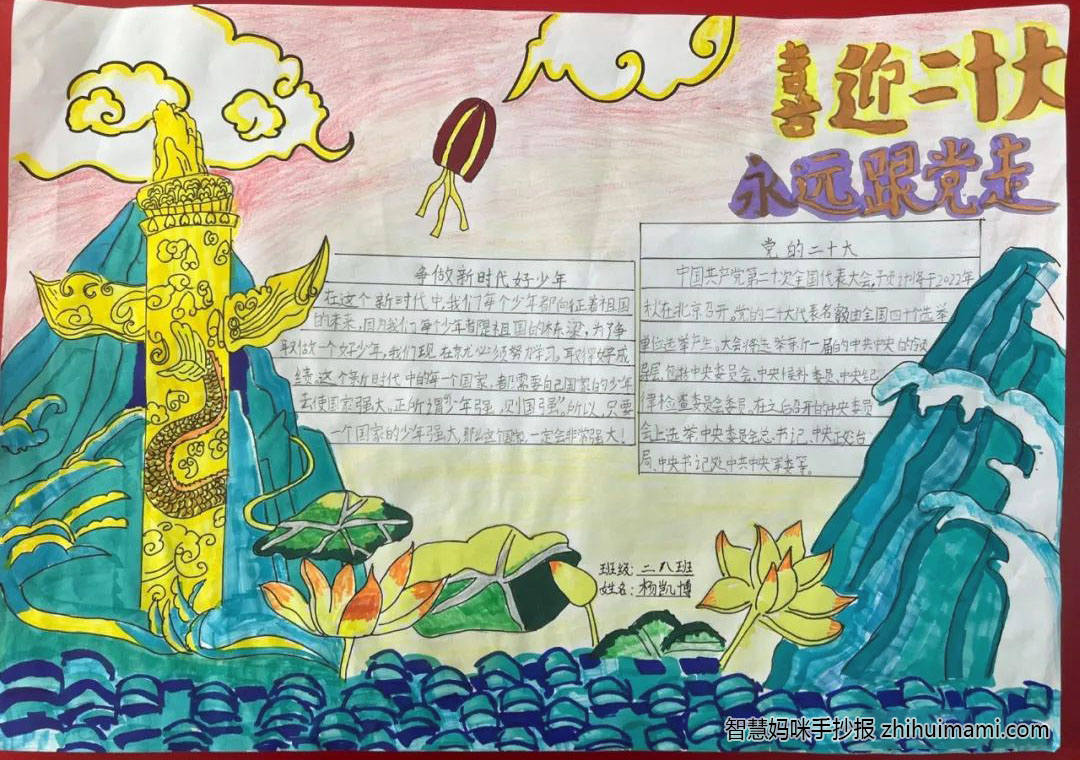 喜迎二十大
永远跟党走
争做新时代好少年
在这个新时代中,我们每个少年都向征着祖国
的未来,因为我们每个少年者限祖国的栋梁,为了争
取做一个好少年,我们现在京尤必须努力学习。取得好成
绩,这个新时代中的每一个国家,都需要自己国家的少年
去使国家强大。正所谓"少年强,则国强"。所以,只要
一个国家的少年强大,那么这个国家,一定会非常强大!
党的二十大
中国共产党第二十次全国代表大会,于预计将于2022年
秋在北京召开。党的二十大代表名额由全国四十个选举
单位选举产生。大会将选举新一届的中共中央的
导层,包括中央委员会、中央候补委员、中央纪
律检查委员会委员。在之后召开的中央委员
会上选举中央委员会总书记、中央政治
局、中央书记处中共中央军委等。
班级:二八班
姓名:杨凯博
智慧妈咪手抄报 zhihuimami.com